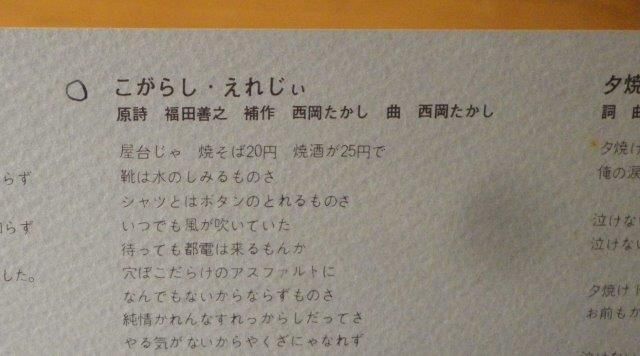 こがらし・えれじぃ
原詩 福田善之 補作 西岡たかし 曲 西岡たかし
屋台じゃ 焼そば20円 焼酒が25円で
靴は水のしみるものさ
シャツとはボタンのとれるものさ
いつでも風が吹いていた
待っても都電は来るもんか
穴ぼこだらけのアスファルトに
なんでもないからならずものさ
純情かれんなすれっからしだってさ
やる気がないからやくざにゃなれず
らず
らず
した。
夕焼
詞 曲
夕焼け
俺の涙
泣けない
泣けない
夕焼け
お前もか